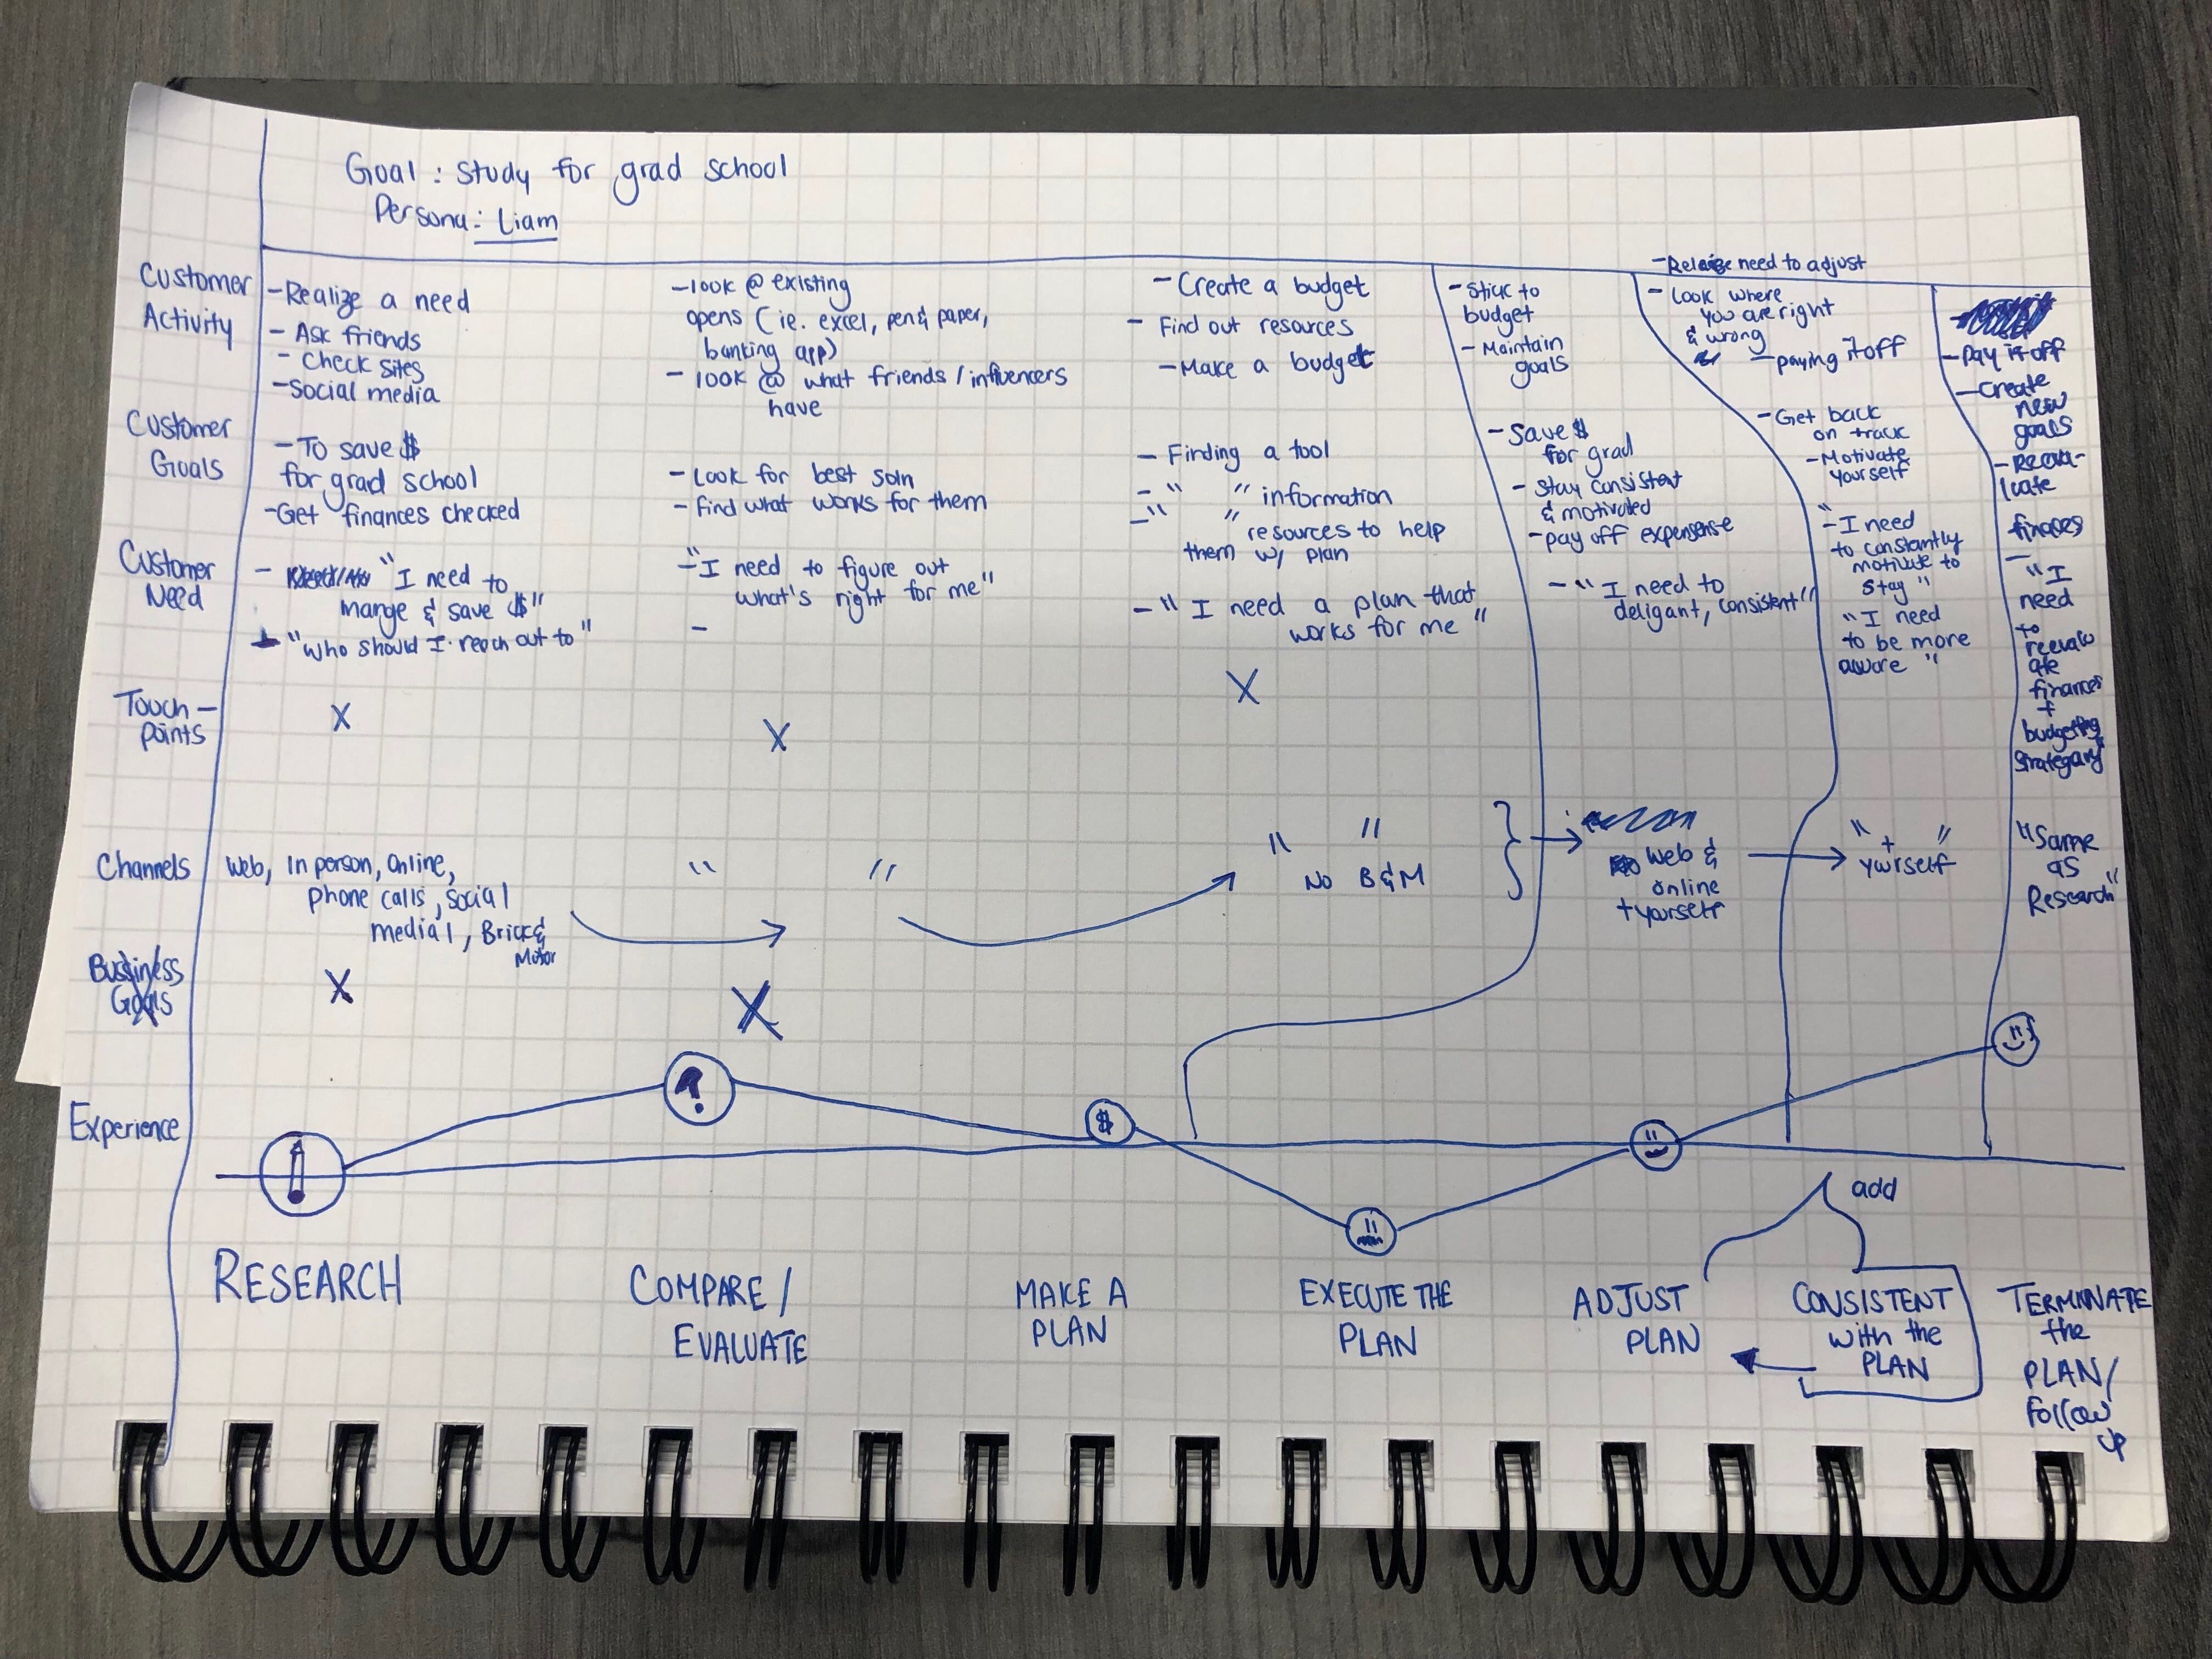 Goal : Study for grad school
Persona : Liam
Customer
Activity
-Realize a need
- Ask friends
- Check sites
-Social media
-look @ existing
opens (ie. excel, pen & paper,
banking app)
- look @ what friends / influencers
have
- Create a budget
- Find out resources
- Make a budget
- Stick to
budget
- Maintain
goals
need to adjust
- Look where
you are right
& wrong
- paying it off
- Pay it off
- Create
new
goals
Customer
Goals
- To save $
for grad school
-Get finances checked
- Look for best soln
- Find what works for them
- Finding a tool
- " " information
- " " resources to help
them w/ plan
- Save $
for grad
- Stay consistent
& motivated
- pay off expensense
- Get back
on track
- Motivate
yourself
- Reeva-
luate
finances
Customer
Need
- "I need to
mange & save $"
- "Who should I reach out to"
- "I need to figure out
what's right for me"
-
- " I need a plan that
works for me "
- " I need to
deligant, consistent"
"- I need
to constantly
motivate to
stay "
" I need
to be more
aware "
- "I
need
to
reevalu
ate
finances
+
budgeting
Touch -
points
X
X
X
Channels
Web, In person, Online,
phone calls, social
medial, Brick &
Motor
" "
" "
No B&M
Web &
online
+ yourself
" + "
yourself
"Same
as
Research"
Business
Goals
X
X
Experience
!
?
$
add
RESEARCH
COMPARE /
EVALUATE
MAKE A
PLAN
EXECUTE THE
PLAN
ADJUST
PLAN
CONSISTENT
with the
PLAN
TERMINATE
the
PLAN/
Follow
up